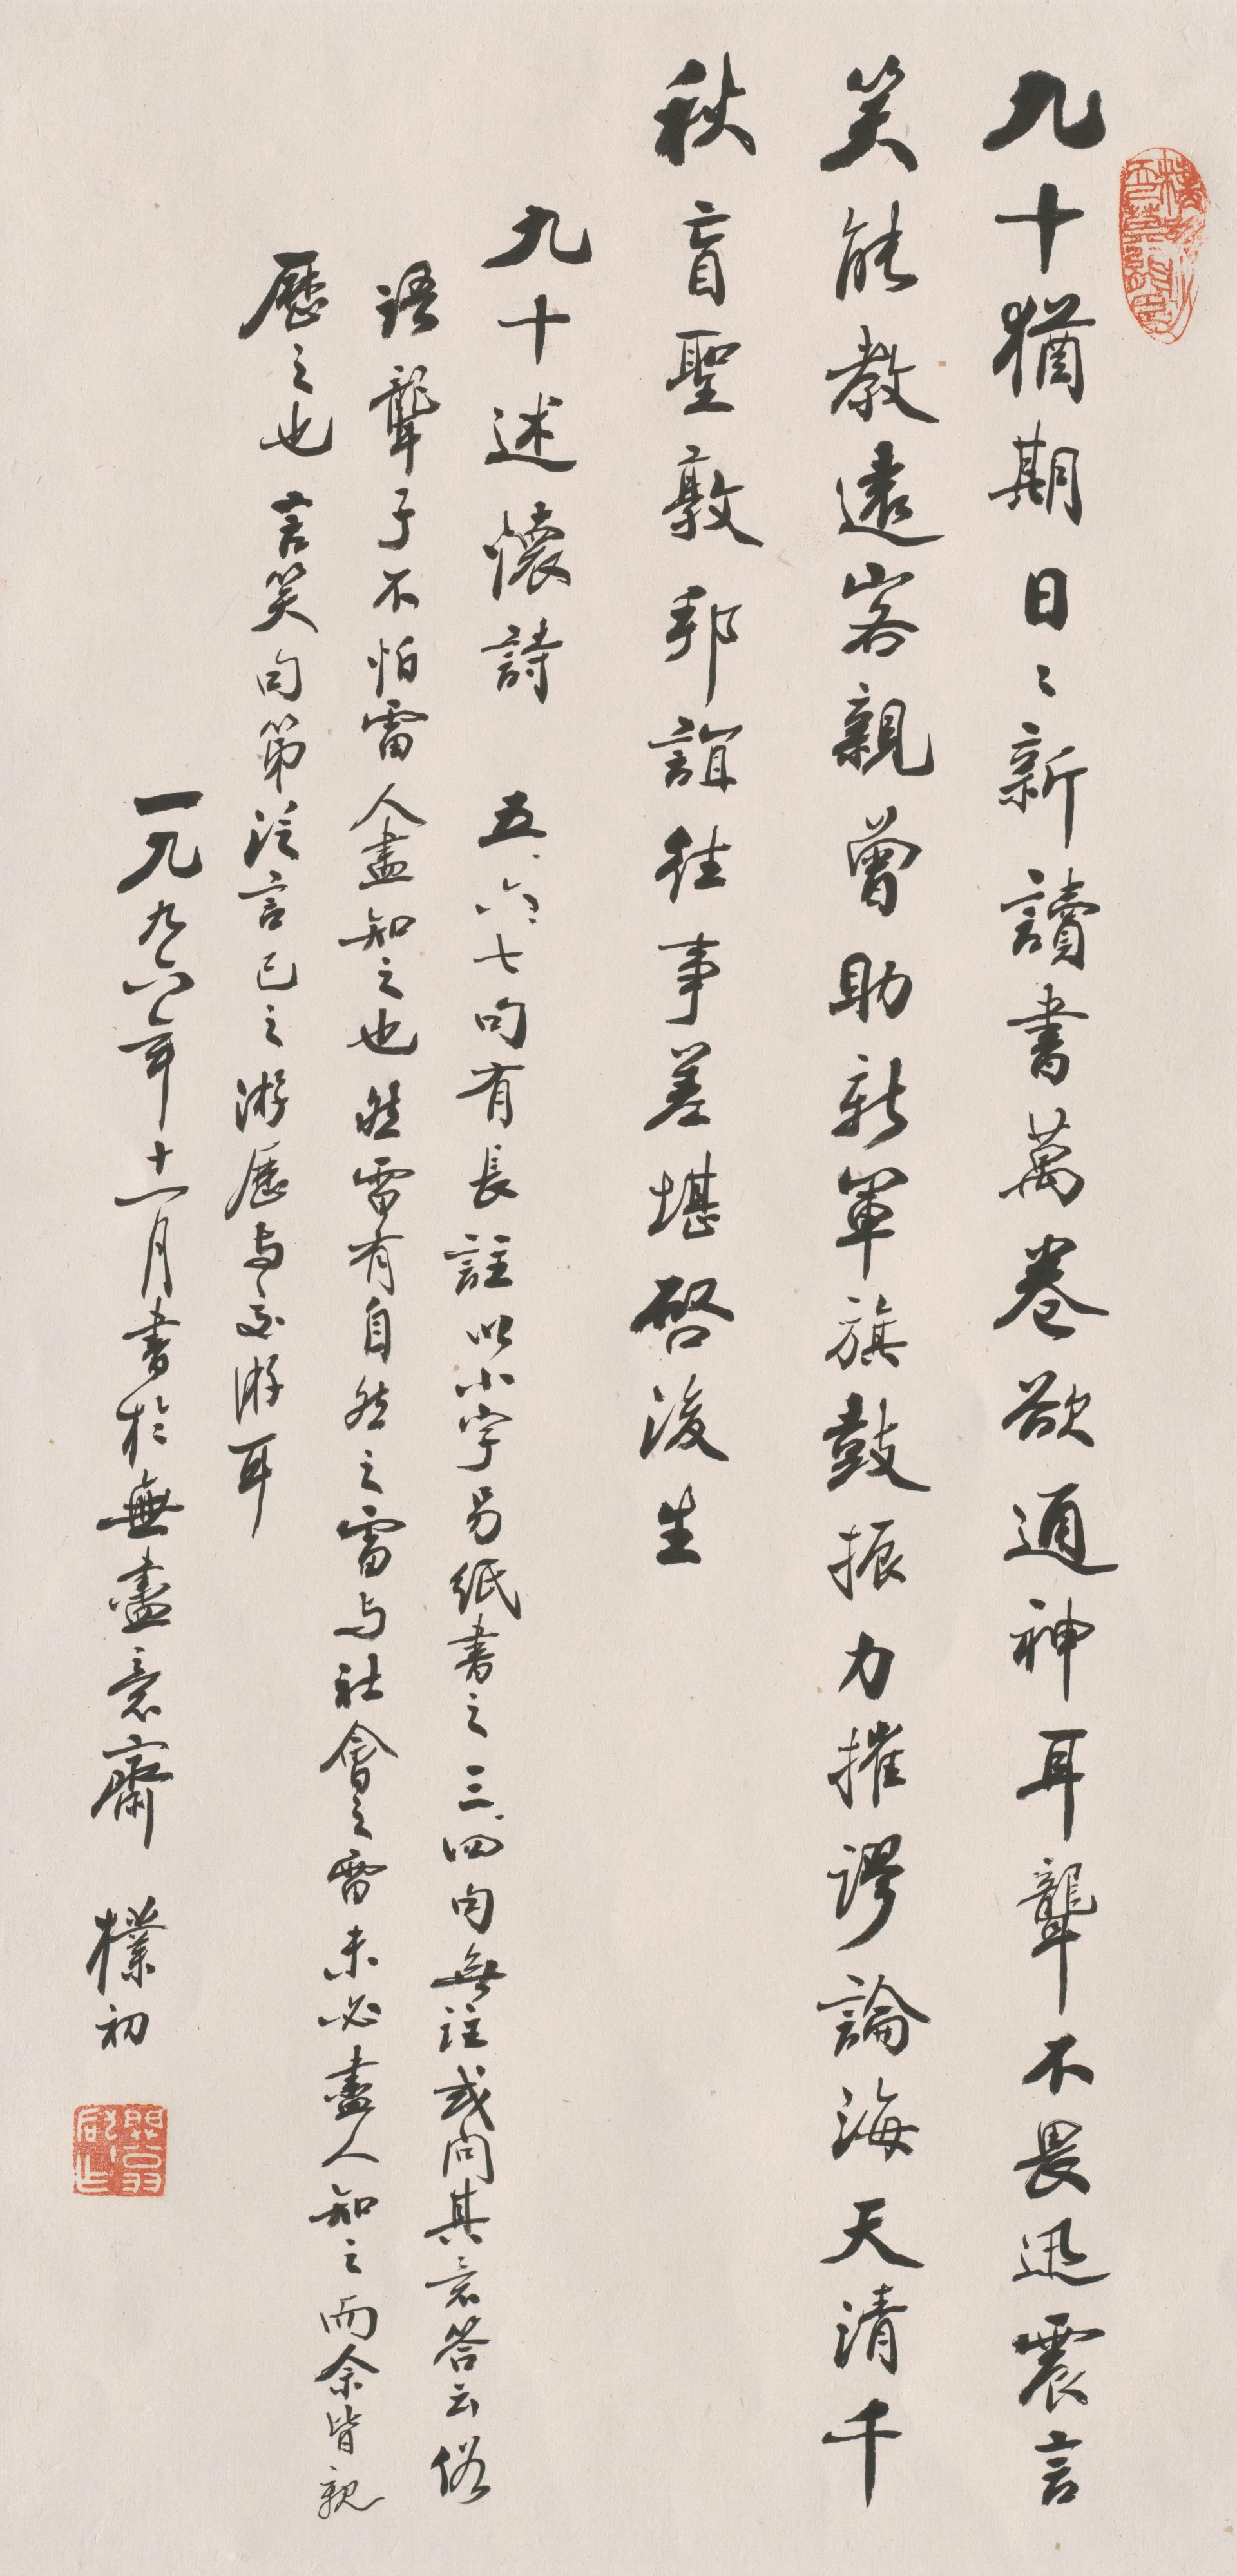 九十猶期日〻新讀書萬卷欲通神耳聾不畏迅震言
笑能教遠客親曾助新軍旗鼓振力摧謬論海天清千
秋盲聖敦邦誼往事差堪啓後生
九十述懷詩 五、六、七句有長註以小字另紙書之三、四句無註或問其意答云俗
語聾子不怕雷人盡知之也然雷有自然之雷与社會之雷未必盡人知之而余皆親
歷之也言笑句第泛言己之游歷与交游耳
一九九六年十一月書於無盡意齋 樸初